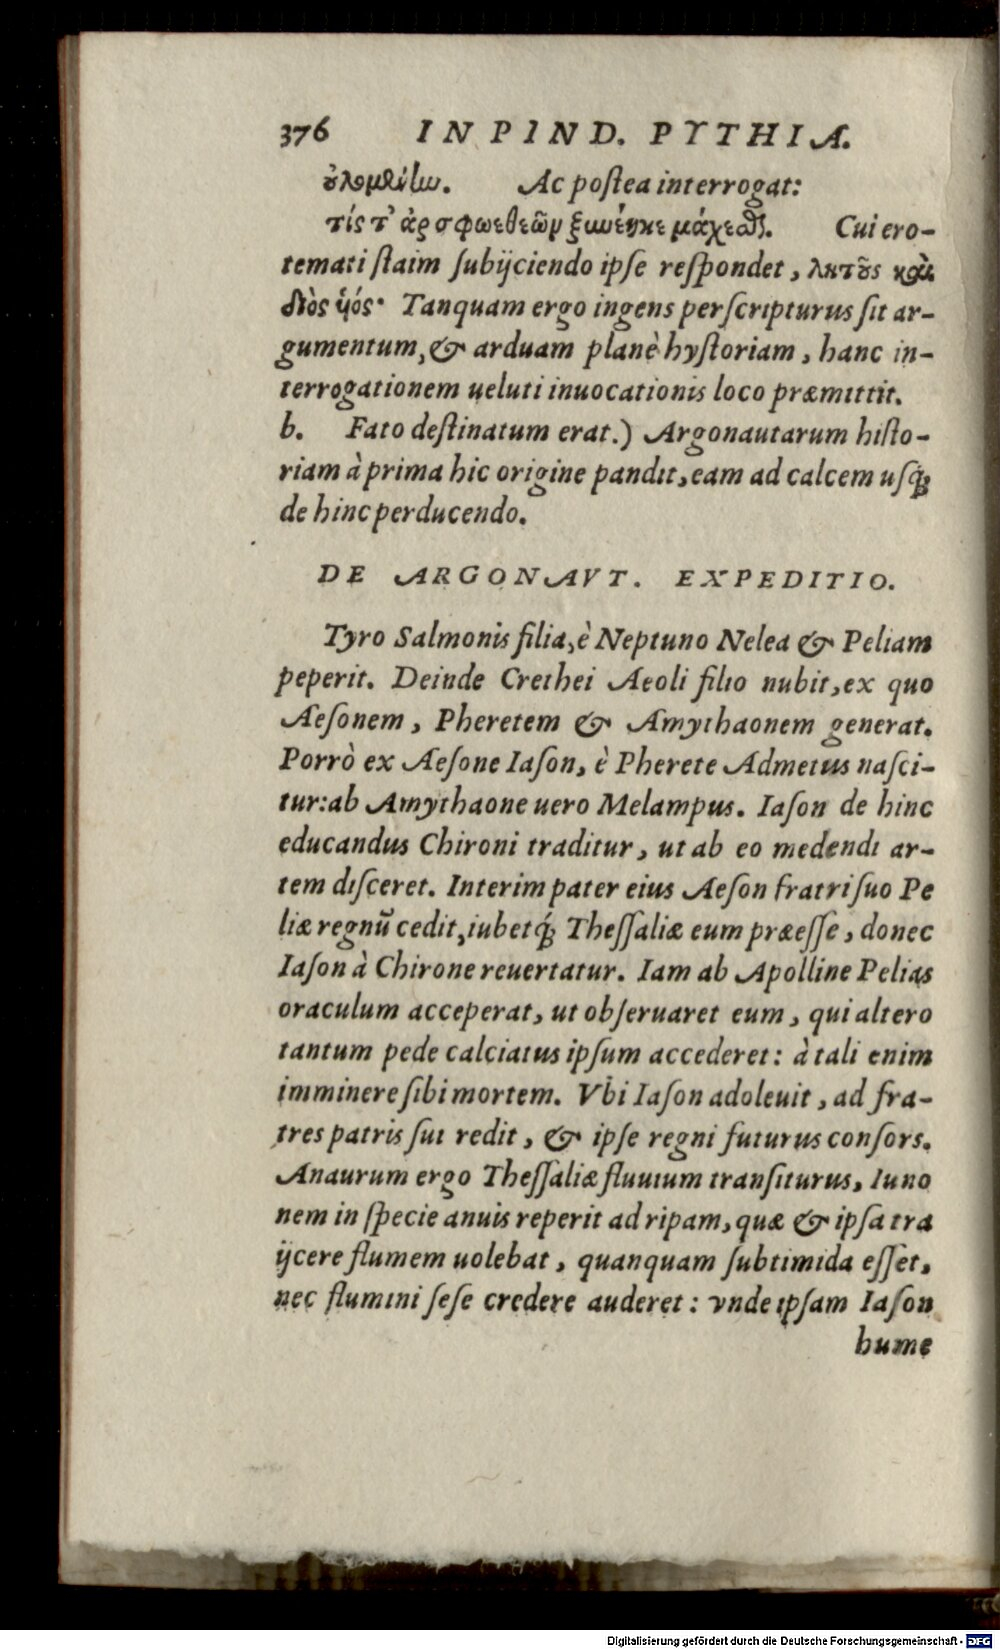 376 IN PIND. PYTHIA.
ȣ̓λομϖίω. Ac poſtea interrogat:
τίς τ᾽ ἀρ σφωε θεῶν ξυνέηκε μάχεσθαι. Cui ero-
temati ſtaim ſubijciendo ipſe reſpondet, λητοῦς καὶ
διὸς ὑός· Tanquam ergo ingens perſcripturus ſit ar-
gumentum, & arduam planè hyſtoriam, hanc in-
terrogationem ueluti inuocationis loco præmittit.
b. Fato deſtinatum erat.) Argonautarum hiſto-
riam à prima hic origine pandit, eam ad calcem uſq́;
de hinc perducendo.
DE ARGONAVT. EXPEDITIO.
Tyro Salmonis filia, è Neptuno Nelea & Peliam
peperit. Deinde Crethei Aeoli filio nubit, ex quo
Aeſonem, Pheretem & Amythaonem generat.
Porrò ex Aeſone Iaſon, è Pherete Admetus naſci-
tur: ab Amythaone uero Melampus. Iaſon de hinc
educandus Chironi traditur, ut ab eo medendi ar-
tem diſceret. Interim pater eius Aeſon fratri ſuo Pe
liæ regnū cedit, iubetq́; Theſſaliæ eum præeſſe, donec
Iaſon à Chirone reuertatur. Iam ab Apolline Pelias
oraculum acceperat, ut obſeruaret eum, qui altero
tantum pede calciatus ipſum accederet: à tali enim
imminere ſibi mortem. Vbi Iaſon adoleuit, ad fra-
tres patris ſui redit, & ipſe regni futurus conſors.
Anaurum ergo Theſſaliæ fluuium tranſiturus, Iuno
nem in ſpecie anuis reperit ad ripam, quæ & ipſa tra
ijcere flumem uolebat, quanquam ſubtimida eſſet,
nec flumini ſeſe credere auderet: vnde ipſam Iaſon
hume
Digitalisierung gefördert durch die Deutsche Forschungsgemeinschaft - DFG